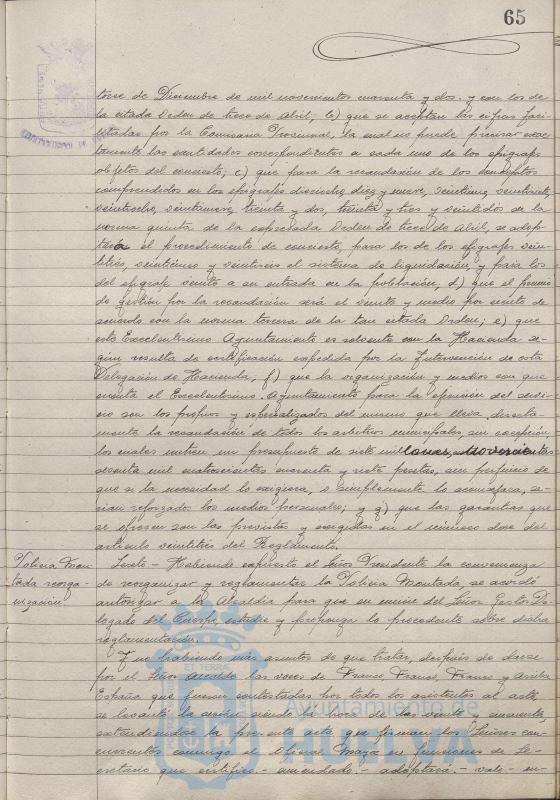 65
torce de Diciembre de mil novecientos cuarenta y dos y con los de
la citada Orden de trece de Abril, b) que se aceptan las cifras faci-
litadas por la Comisaría Provincial, la cual no puede precisar exac-
tamente las cantidades correspondientes a cada uno de los epígrafes
objetos del concierto; c) que para la recaudación de los conceptos
comprendidos en los epígrafes dieciocho, diez y nueve, veintiuno, veintisiete,
veintiocho, veintinueve, treinta y dos, treinta y tres y veintidos de la
norma quinta de la expresada Orden de trece de Abril, se adop-
tará el procedimiento de concierto, para los de los epígrafes vein-
titrés, veinticinco y veintiseis el sistema de liquidación, y para los
del epígrafe veinte a su entrada en la población, d) que el premio
de gestión por la recaudación será el veinte y medio por ciento de
acuerdo con la norma tercera de la tan citada Orden; e) que
este Excelentísimo Ayuntamiento es solvente con la Hacienda se-
gún resulta de certificación expedida por la Intervención de esta
Delegación de Hacienda, f) que la organización y medios con que
cuenta el Excelentísimo Ayuntamiento para la efección del servi-
cio son los propios y especializados del mismo que lleva directa-
mente la recaudación de todos los arbitrios municipales, sin excepción,
los cuales nutren un presupuesto de siete millones, novecientas
sesenta mil cuatrocientas cuarenta y siete pesetas, sin perjuicio de
que si la necesidad lo exigiera, o simplemente lo aconsejara, se-
rían reforzados los medios personales; y g) que las garantías que
se ofrecen son las previstas y exigidas en el número doce del
artículo veintitres del Reglamento.
Policia Mon-
tada reorga-
nización
Sexto - Habiendo expuesto el Señor Presidente la conveniencia
de reorganizar y reglamentar la Policía Montada, se acordó
autorizar a la Alcaldía para que en unión del Señor Gestor De-
legado del Cuerpo estudie y proponga lo procedente sobre dicha
reglamentación.
Y no habiendo más asuntos de que tratar, después de darse
por el Señor Alcalde las voces de Franco, Franco, Franco y Arriba
España que fueron contestadas por todos los asistentes al acto
se levantó la sesión siendo la hora de las veinte y cincuenta,
extendiéndose la presente acta que firman los Señores con-
currentes conmigo el Oficial Mayor en funciones de Se-
cretario que certifico.- enmendado.- adoptará.- vale.- en-
Ayuntamiento de
HUELVA